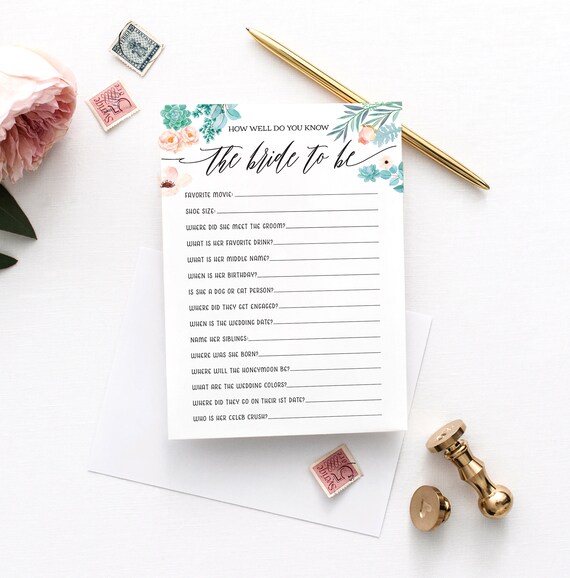 HOW WELL DO YOU KNOW
the bride to be
FAVORITE MOVIE:
SHOE SIZE:
WHERE DID SHE MEET THE GROOM?
WHAT IS HER FAVORITE DRINK?
WHAT IS HER MIDDLE NAME?
WHEN IS HER BIRTHDAY?
IS SHE A DOG OR CAT PERSON?
WHERE DID THEY GET ENGAGED?
WHEN IS THE WEDDING DATE?
NAME HER SIBLINGS:
WHERE WAS SHE BORN?
WHERE WILL THE HONEYMOON BE?
WHAT ARE THE WEDDING COLORS?
WHERE DID THEY GO ON THEIR 1ST DATE?
WHO IS HER CELEB CRUSH?